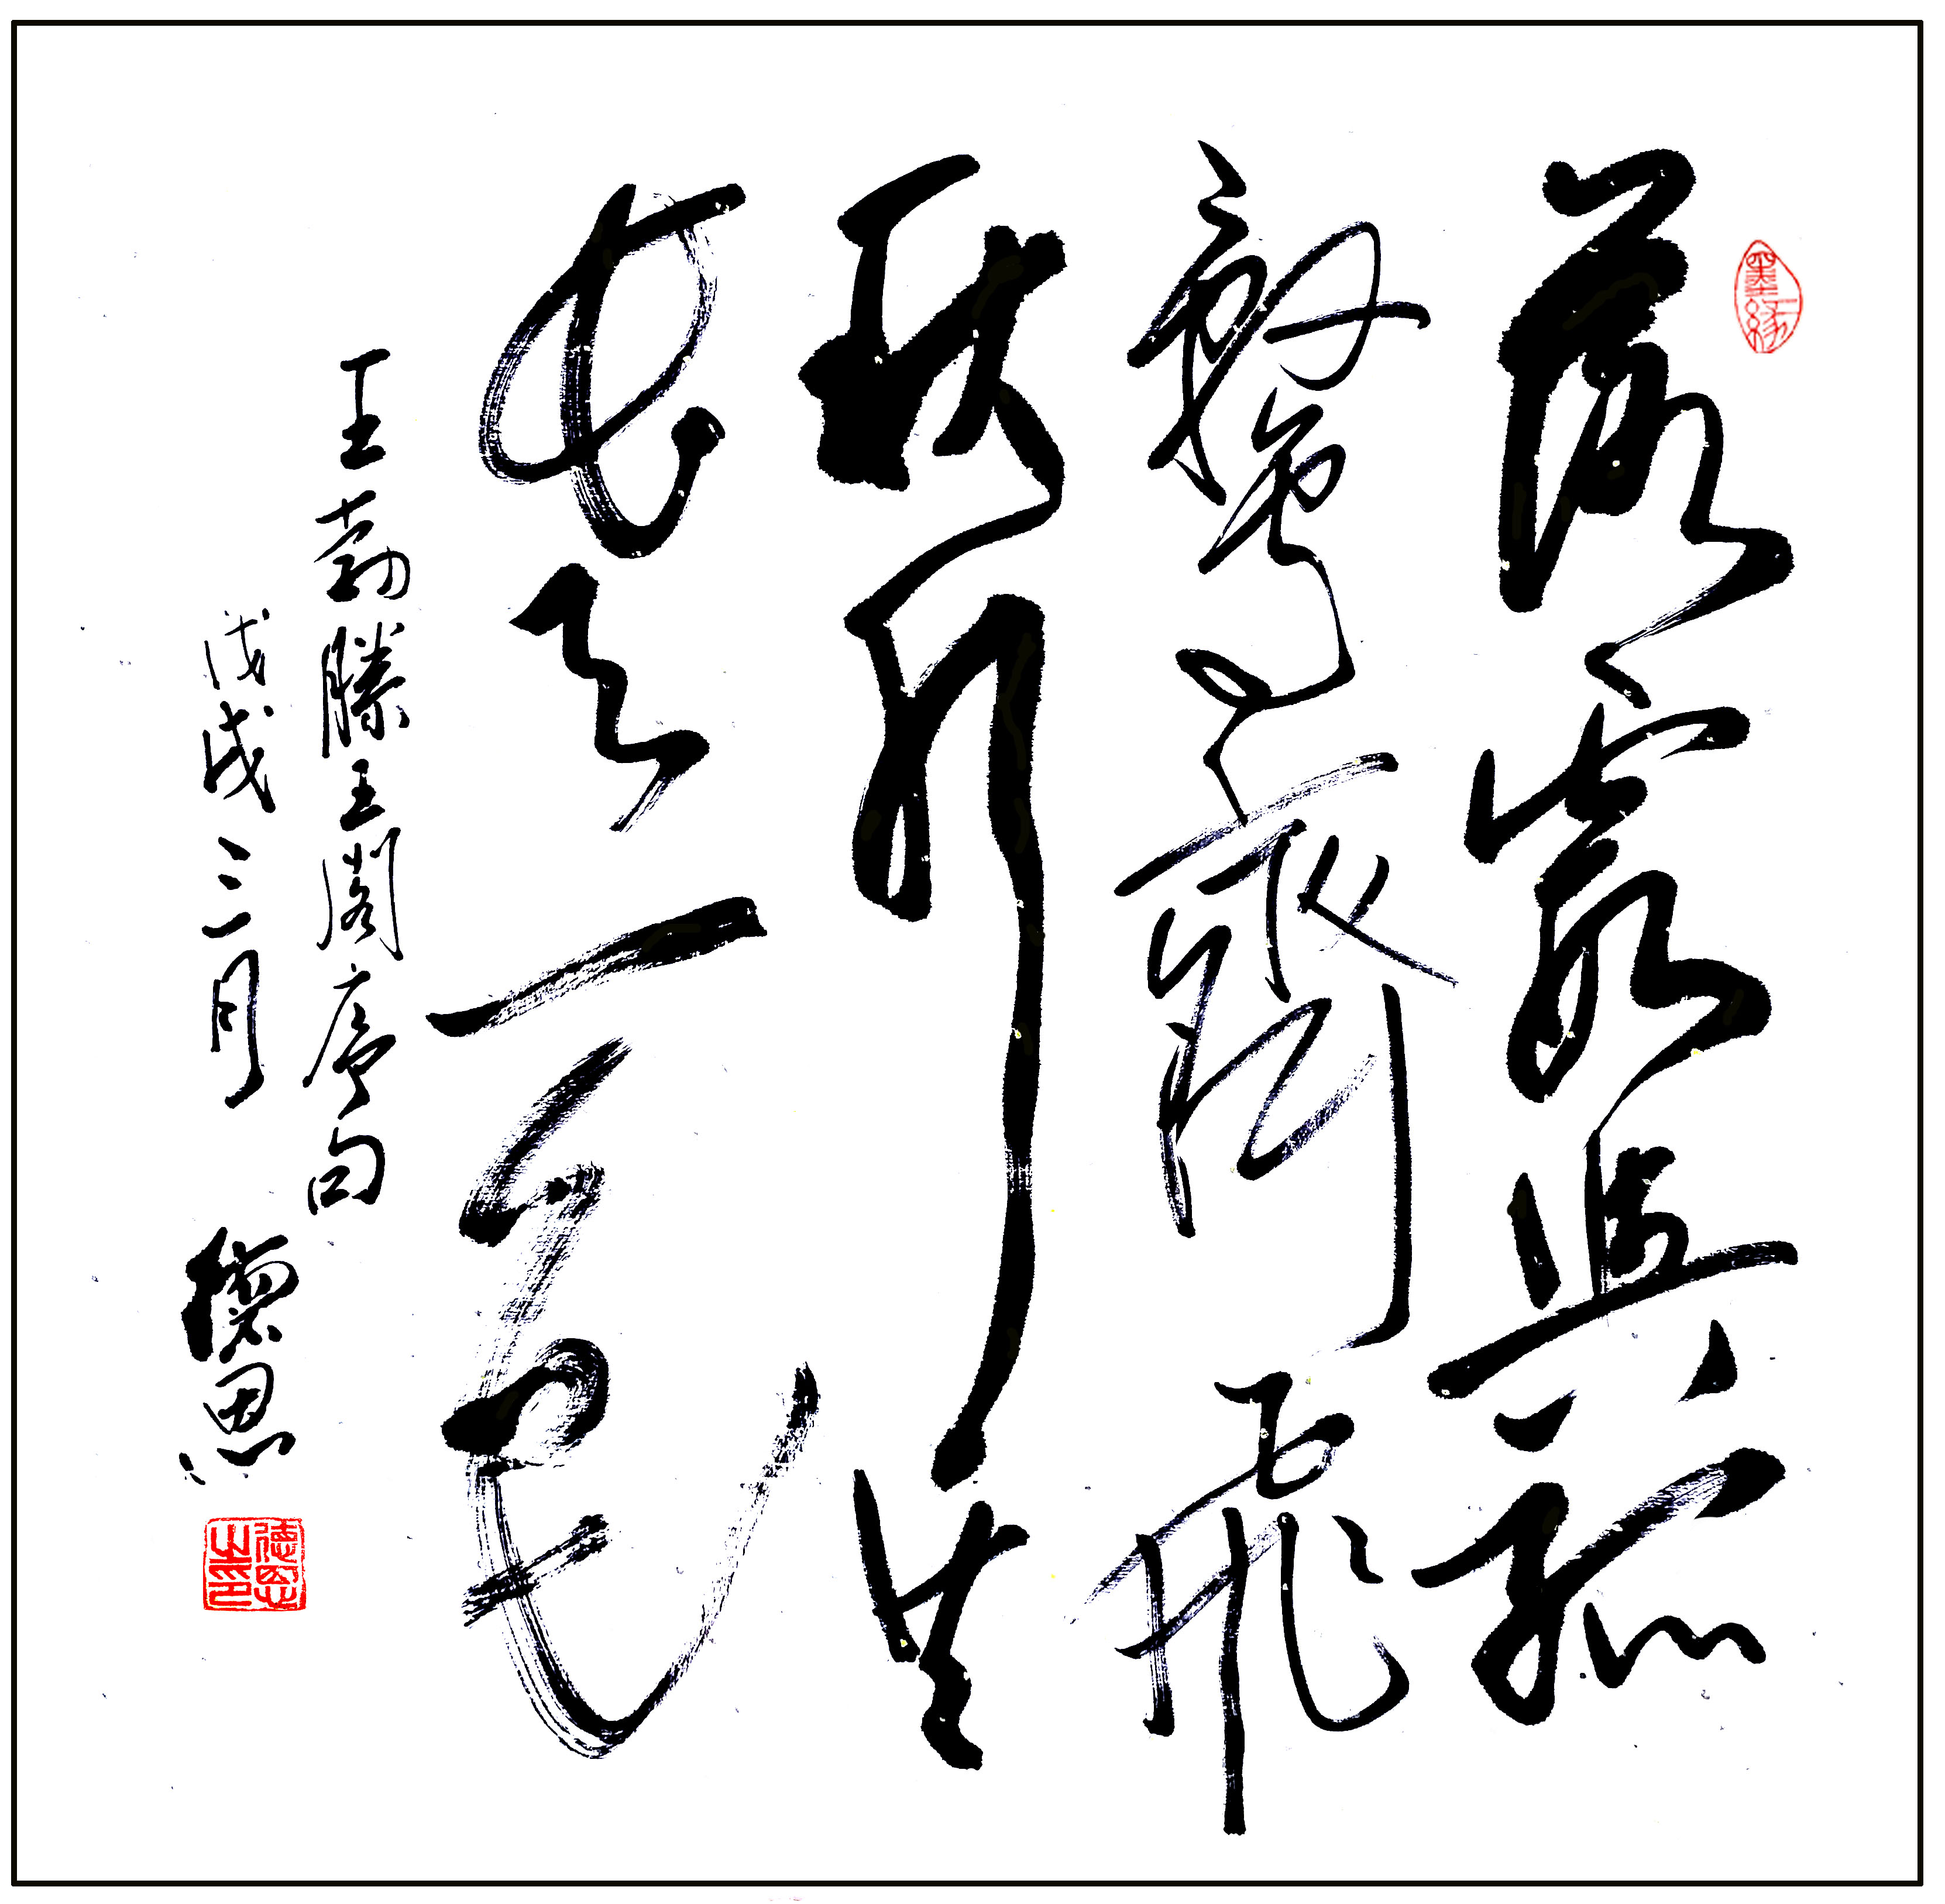 墨緣
落霞與孤
鶩齊飛
秋水共
長天一色
王勃滕王閣序句
戊戌三月 德恩
德恩之印